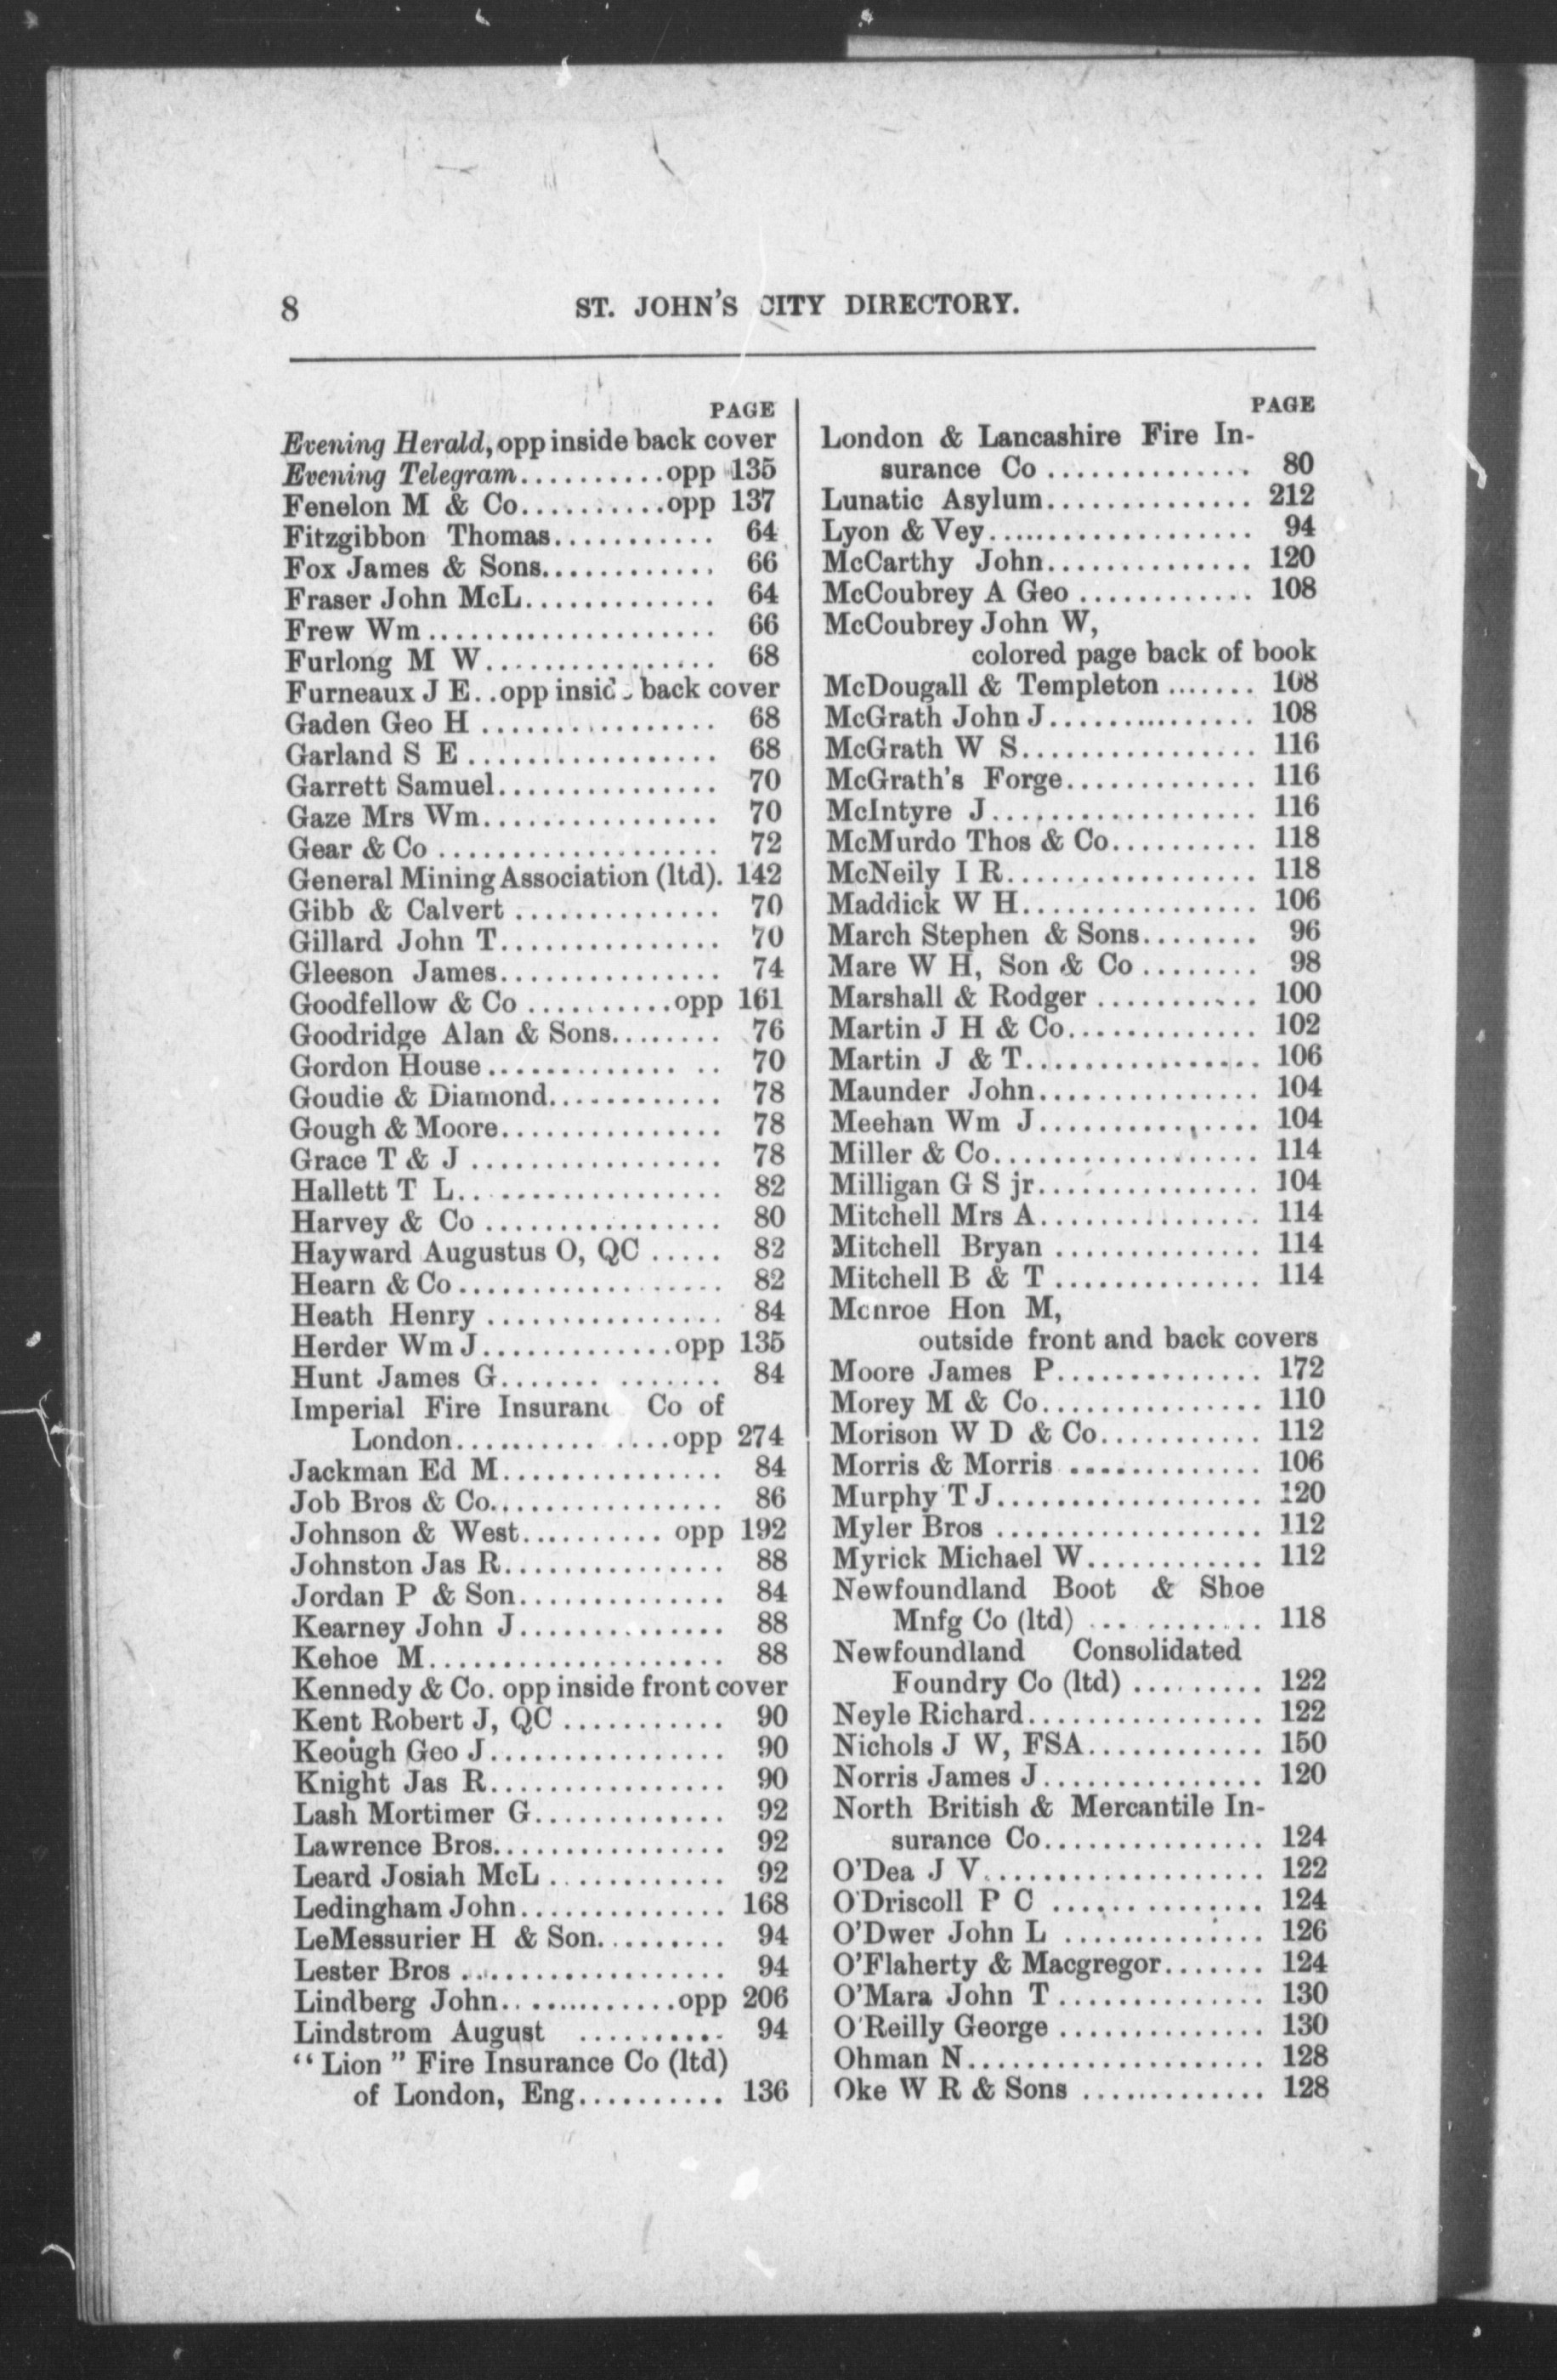 8 ST. JOHN'S CITY DIRECTORY.
PAGE
Evening Herald, opp inside back cover
Evening Telegram..........opp 135
Fenelon M & Co..........opp 137
Fitzgibbon Thomas........... 64
Fox James & Sons............ 66
Fraser John McL............. 64
Frew Wm .................... 66
Furlong M W................ 68
Furneaux J E..opp inside back cover
Gaden Geo H ................ 68
Garland S E ................. 68
Garrett Samuel............... 70
Gaze Mrs Wm................ 70
Gear & Co ................... 72
General Mining Association (ltd). 142
Gibb & Calvert .............. 70
Gillard John T............... 70
Gleeson James............... 74
Goodfellow & Co ..........opp 161
Goodridge Alan & Sons........ 76
Gordon House ............. .. 70
Goudie & Diamond............ 78
Gough & Moore............... 78
Grace T & J ................. 78
Hallett T L.................. 82
Harvey & Co ................ 80
Hayward Augustus O, QC ..... 82
Hearn & Co .................. 82
Heath Henry ................ 84
Herder Wm J.............opp 135
Hunt James G............... 84
Imperial Fire Insurance Co of
London...............opp 274
Jackman Ed M............... 84
Job Bros & Co................ 86
Johnson & West.......... opp 192
Johnston Jas R............... 88
Jordan P & Son.............. 84
Kearney John J.............. 88
Kehoe M.................... 88
Kennedy & Co. opp inside front cover
Kent Robert J, QC ........... 90
Keough Geo J................ 90
Knight Jas R................ 90
Lash Mortimer G............. 92
Lawrence Bros................ 92
Leard Josiah McL ............ 92
Ledingham John.............. 168
LeMessurier H & Son......... 94
Lester Bros .................. 94
Lindberg John............opp 206
Lindstrom August .......... 94
" Lion " Fire Insurance Co (ltd)
of London, Eng.......... 136
PAGE
London & Lancashire Fire In-
surance Co .............. 80
Lunatic Asylum.............. 212
Lyon & Vey.................. 94
McCarthy John.............. 120
McCoubrey A Geo ............ 108
McCoubrey John W,
colored page back of book
McDougall & Templeton ....... 108
McGrath John J.............. 108
McGrath W S................ 116
McGrath's Forge............. 116
McIntyre J.................. 116
McMurdo Thos & Co.......... 118
McNeily I R................. 118
Maddick W H................ 106
March Stephen & Sons........ 96
Mare W H, Son & Co ........ 98
Marshall & Rodger ........... 100
Martin J H & Co............. 102
Martin J & T................ 106
Maunder John............... 104
Meehan Wm J............... 104
Miller & Co.................. 114
Milligan G S jr............... 104
Mitchell Mrs A............... 114
Mitchell Bryan .............. 114
Mitchell B & T .............. 114
Monroe Hon M,
outside front and back covers
Moore James P.............. 172
Morey M & Co............... 110
Morison W D & Co........... 112
Morris & Morris ............. 106
Murphy T J.................. 120
Myler Bros .................. 112
Myrick Michael W............ 112
Newfoundland Boot & Shoe
Mnfg Co (ltd) ............ 118
Newfoundland Consolidated
Foundry Co (ltd) ......... 122
Neyle Richard................ 122
Nichols J W, FSA............ 150
Norris James J............... 120
North British & Mercantile In-
surance Co............... 124
O'Dea J V................... 122
O'Driscoll P C .............. 124
O'Dwer John L .............. 126
O'Flaherty & Macgregor....... 124
O'Mara John T .............. 130
O'Reilly George .............. 130
Ohman N.................... 128
Oke W R & Sons ............. 128